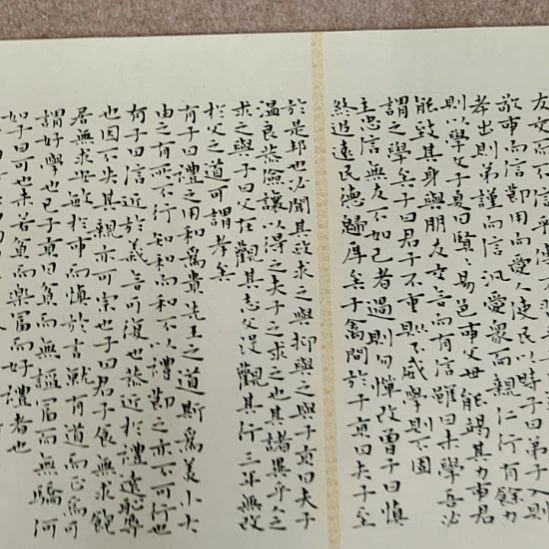 友交而不信乎
敬事而信節用而愛人使民以時子曰弟子入則
孝出則弟謹而信汎愛衆而親仁行有餘力
則以學文子夏曰賢〻易色事父母能竭其力事君
能致其身與朋友交言而有信雖曰未學吾必
謂之學矣子曰君子不重則不威學則不固
主忠信無友不如己者過則勿憚改曾子曰慎
終追遠民德歸厚矣子禽問於子貢曰夫子至
於是邦也必聞其政求之與抑與之與子貢曰夫子
溫良恭儉讓以得之夫子之求之也其諸異乎人之
求之與子曰父在觀其志父沒觀其行三年無改
於父之道可謂孝矣
有子曰禮之用和爲貴先王之道斯爲美小大
由之有所不行知和而和不以禮節之亦不可行也
有子曰信近於義言可復也恭近於禮遠恥辱
也因不失其親亦可宗也子曰君子食無求飽
居無求安敏於事而慎於言就有道而正焉可
謂好學也已子貢曰貧而無諂富而無驕何
如子曰可也未若貧而樂富而好禮者也